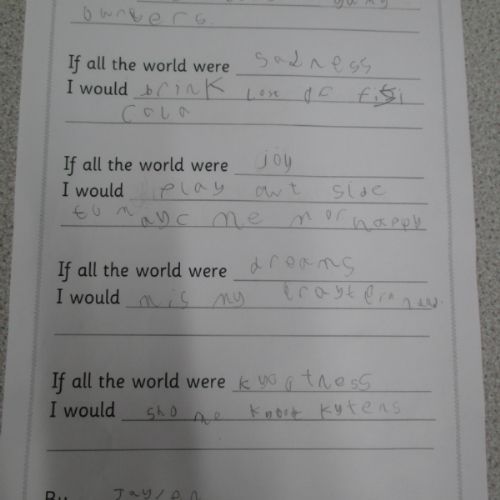 owners.
If all the world were sadness
I would brink lose of fissi
Cola
If all the world were joy
I would play out side
to make me mor happy
If all the world were dreams
I would mis my
If all the world were kyootness
I would sho me know kytens
By Jayden